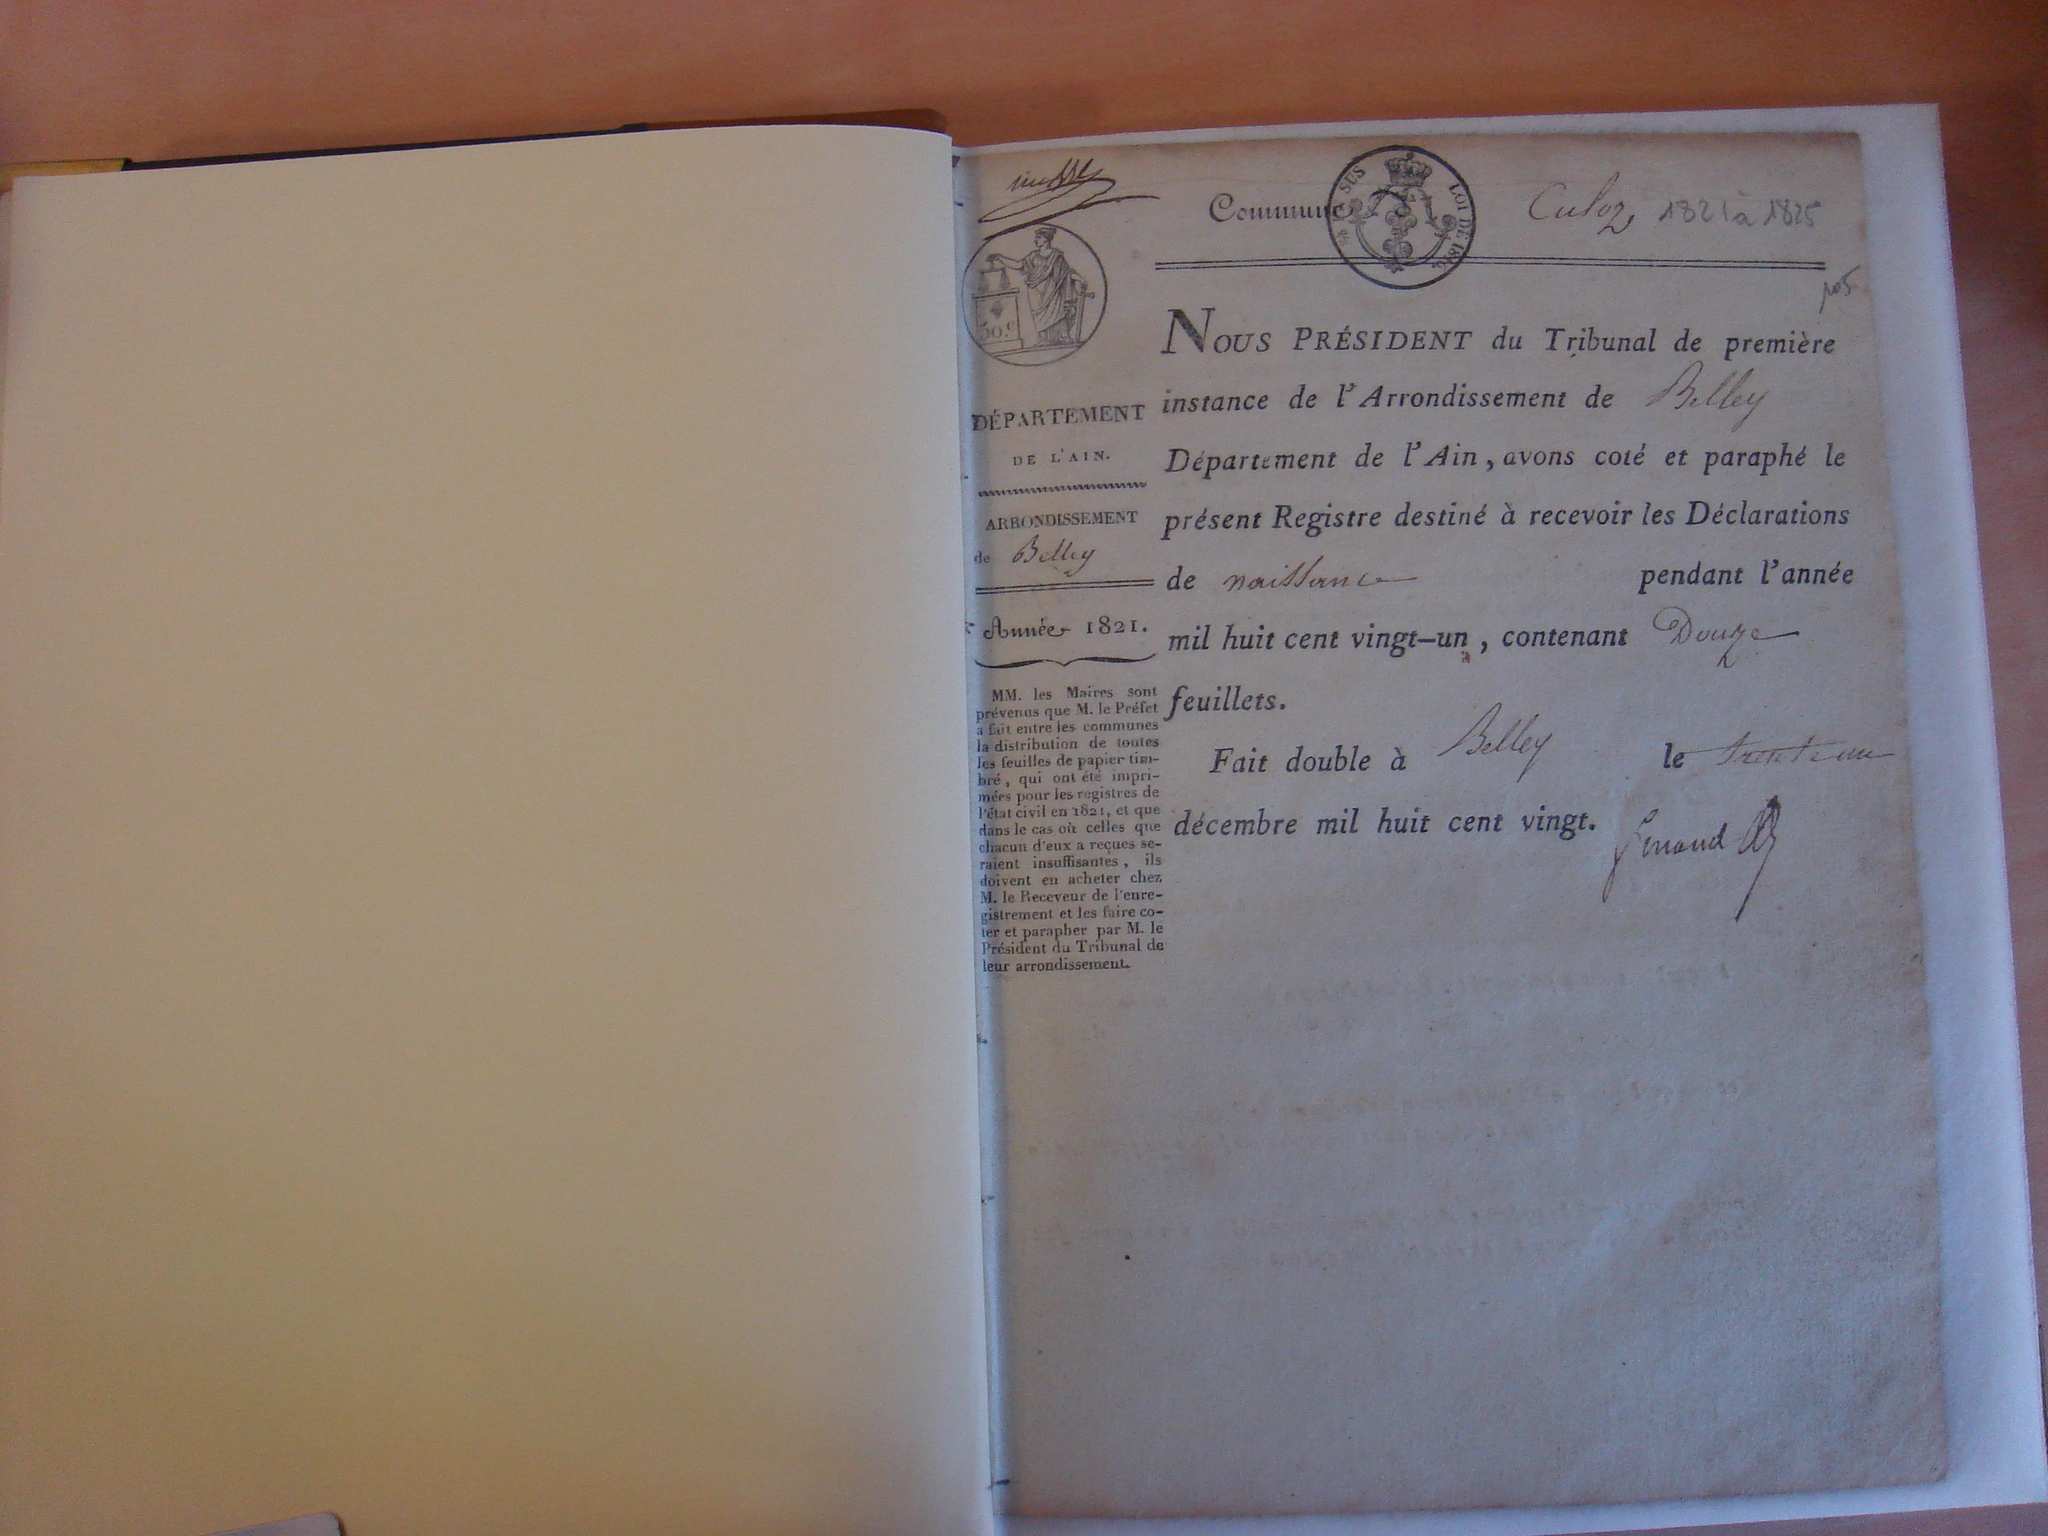 Commune Culoz, 1821 à 1825
EN SUS LOI DE 1816
50.c
DÉPARTEMENT
DE L'AIN.
ARRONDISSEMENT
de Belley
Année 1821.
MM. les Maires sont
prévenus que M. le Préfet
a fait entre les communes
la distribution de toutes
les feuilles de papier tim-
bré, qui ont été impri-
mées pour les registres de
l'état civil en 1821, et que
dans le cas où celles que
chacun d'eux a reçues se-
raient insuffisantes, ils
doivent en acheter chez
M. le Receveur de l'enre-
gistrement et les faire co-
ter et parapher par M. le
Président du Tribunal de
leur arrondissement.
NOUS PRÉSIDENT du Tribunal de première
instance de l'Arrondissement de Belley
Département de l'Ain, avons coté et paraphé le
présent Registre destiné à recevoir les Déclarations
de naissance pendant l'année
mil huit cent vingt-un, contenant Douze
feuillets.
Fait double à Belley le trente un
décembre mil huit cent vingt.